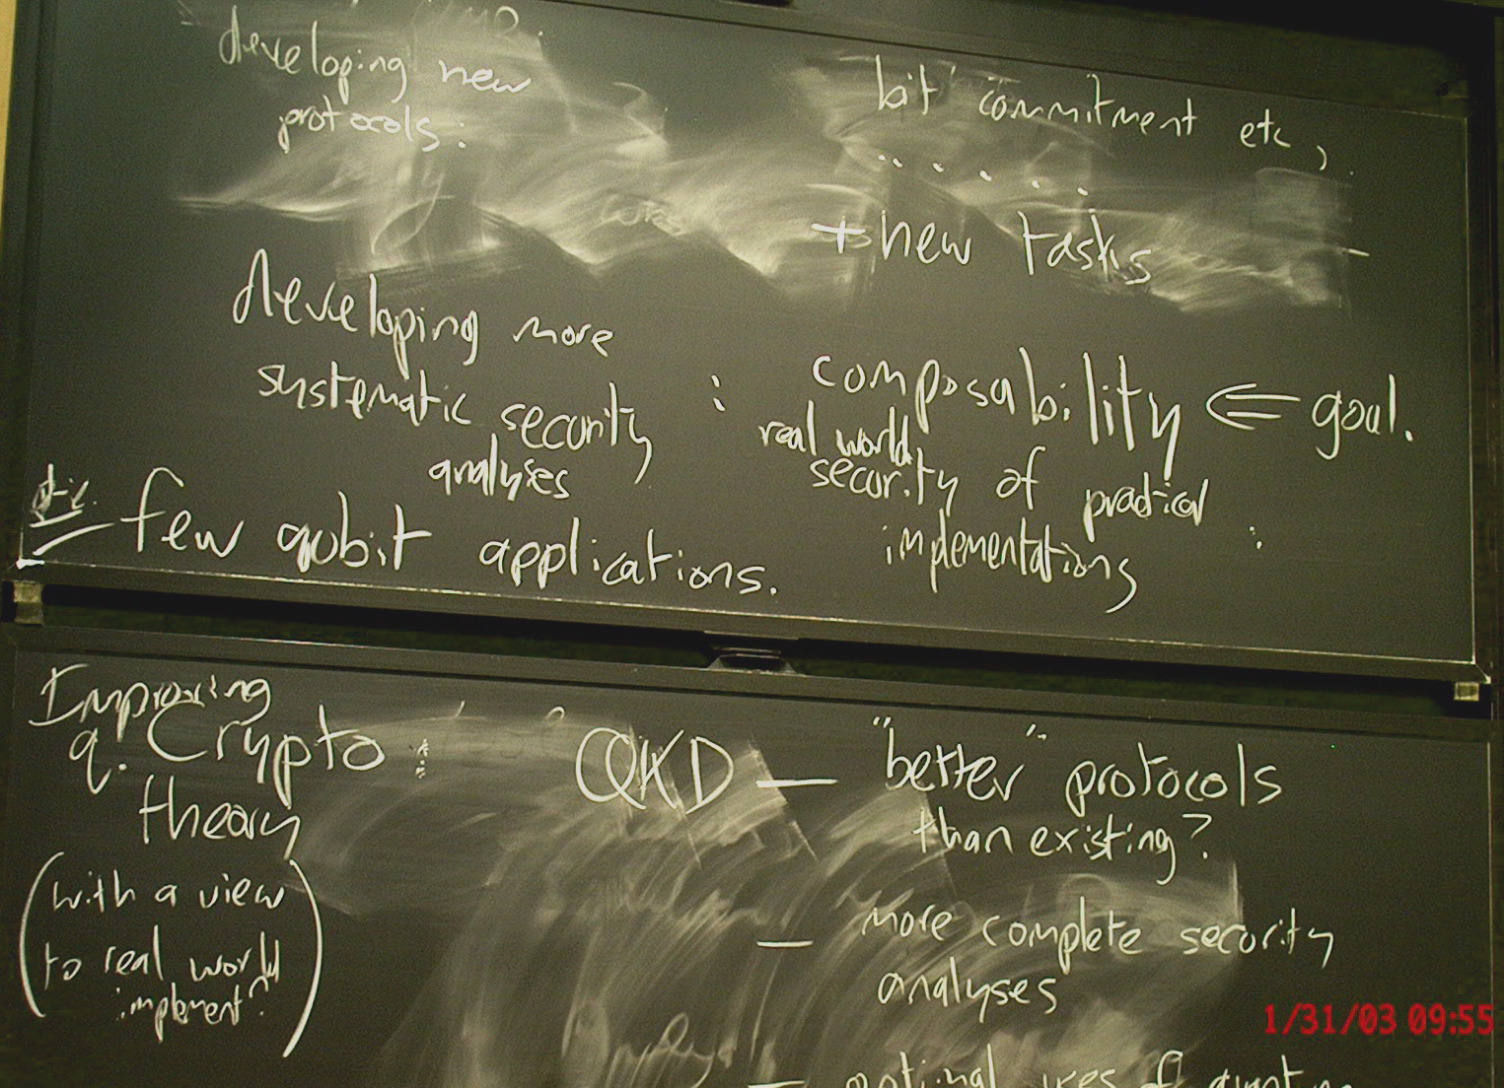 developing new
protocols:
bit commitment etc,
.....
+ new tasks
developing more
systematic security
analyses
:
composability ⇐ goal.
real world
security of practical
implementations
:
few qubit applications.
Improving
q. Crypto :
theory
(with a view
to real world
implement?)
QKD — "better" protocols
than existing?
— more complete security
analyses
— optimal uses of
1/31/03 09:55